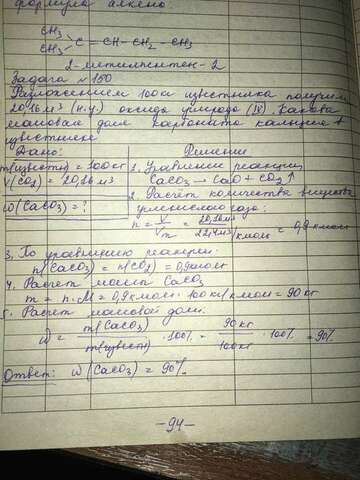 формула алкена:
CH3
CH3 C = CH - CH2 - CH3
2-метилпентен-2
Задача №150
Разложением 100кг известняка получили
20,16 м³ (н.у.) оксида углерода (IV). Какова
массовая доля карбоната кальция в
известняке
Дано: Решение
m(известн) = 100 кг 1. Уравнение реакции
V(CO2) = 20,16 м³ CaCO3 → CaO + CO2↑
ω(CaCO3) = ? 2. Расчёт количества вещества
углекислого газа:
n = V/Vm = 20,16 м³ / 22,4 м³/кмоль = 0,9 кмоль
3. По уравнению реакции:
n(CaCO3) = n(CO2) = 0,9 кмоль
4. Расчёт массы CaCO3
m = n·M = 0,9 кмоль · 100 кг/кмоль = 90 кг
5. Расчёт массовой доли:
ω = m(CaCO3) / m(известн) · 100% = 90 кг / 100 кг · 100% = 90%
Ответ: ω(CaCO3) = 90%
-94-